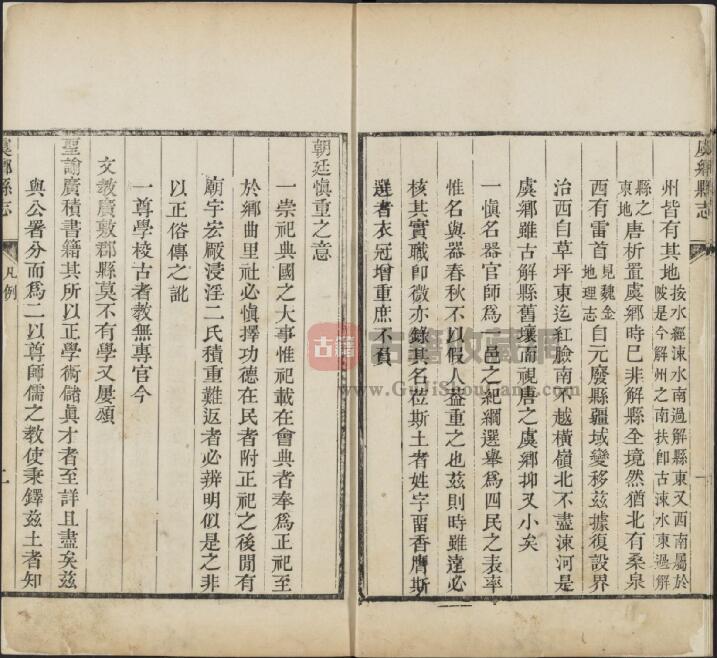 虞鄉縣志
州皆有其地按水經涑水南過解縣東又西南屬於
陂是今解州之南扶卽古涑水東過解
縣之東地唐析置虞鄉時已非解縣全境然猶北有桑泉
西有雷首見魏金地理志自元廢縣疆域變移茲據復設界
治西自草坪東迄紅臉南不越橫嶺北不盡涑河是
虞鄉雖古解縣舊壤而視唐之虞鄉抑又小矣
一慎名器官師爲一邑之紀綱選舉爲四民之表率
惟名與器春秋不以假人益重之也茲則時雖遠必
核其實職卽微亦錄其名蒞斯土者姓字畱香膺斯
選者衣冠增重庶不負
朝廷慎重之意
一崇祀典國之大事惟祀載在會典者奉爲正祀至
於鄉曲里社必慎擇功德在民者附正祀之後閒有
廟宇宏敞浸淫二氏積重難返者必辨明似是之非
以正俗傳之訛
一尊學校古者敎無專官今
文敎廣敷郡縣莫不有學又屢頒
聖諭廣積書籍其所以正學術儲眞才者至詳且盡矣茲
與公署分而爲二以尊師儒之敎使秉鐸茲土者知
虞鄉縣志
凡例
二
古籍
古籍收藏網
www.GuJiShouCang.com